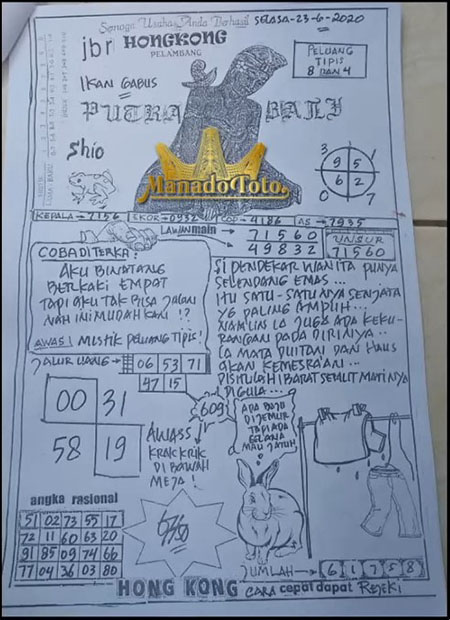 Semoga Usaha Anda Berhasil
SELASA-23-6-2020
jbr HONGKONG
PELAMBANG
PELUANG
TIPIS
8 DAN 4
IKAN GABUS
PUTRA BALI
Shio
3 1
9 5
6 2
0 7
ManadoToto.
KEPALA→7156 EKOR→0932 COP→4186 AS→7935
LAWAN main
71560
49832
UNSUR
71560
COBA DITERKA:
AKU BINATANG
BERKAKI EMPAT
TAPI AKU TAK BISA JALAN
NAH INI MUDAH KAN !?
AWAS! MISTIK PELUANG TIPIS!
SI PENDEKAR WANITA PUNYA
SELENDANG EMAS...
ITU SATU-SATUNYA SENJATA
YG PALING AMPUH...
NAMUN IA JUGA ADA KEKU-
RANGAN PADA DIRINYA..
IA MATA DUITAN DAN HAUS
AKAN KEMESRA'AN...
DISITULAH IBARAT SEMUT MATINYA
DIGULA...
JALUR UANG→ 06 53 71
47 15
00 31
58 19
609
AWASS
KRAK KRIK
DI BAWAH
MEJA!
ADA BAJU
DIJEMUR
TAPI ADA
CELANA
MAU JATUH!
angka rasional
51 02 73 55 17
72 11 60 63 20
91 85 09 74 66
77 04 36 03 80
JUMLAH→ 6 1 7 5 8
HONG KONG CARA cepat dapat REJEKI